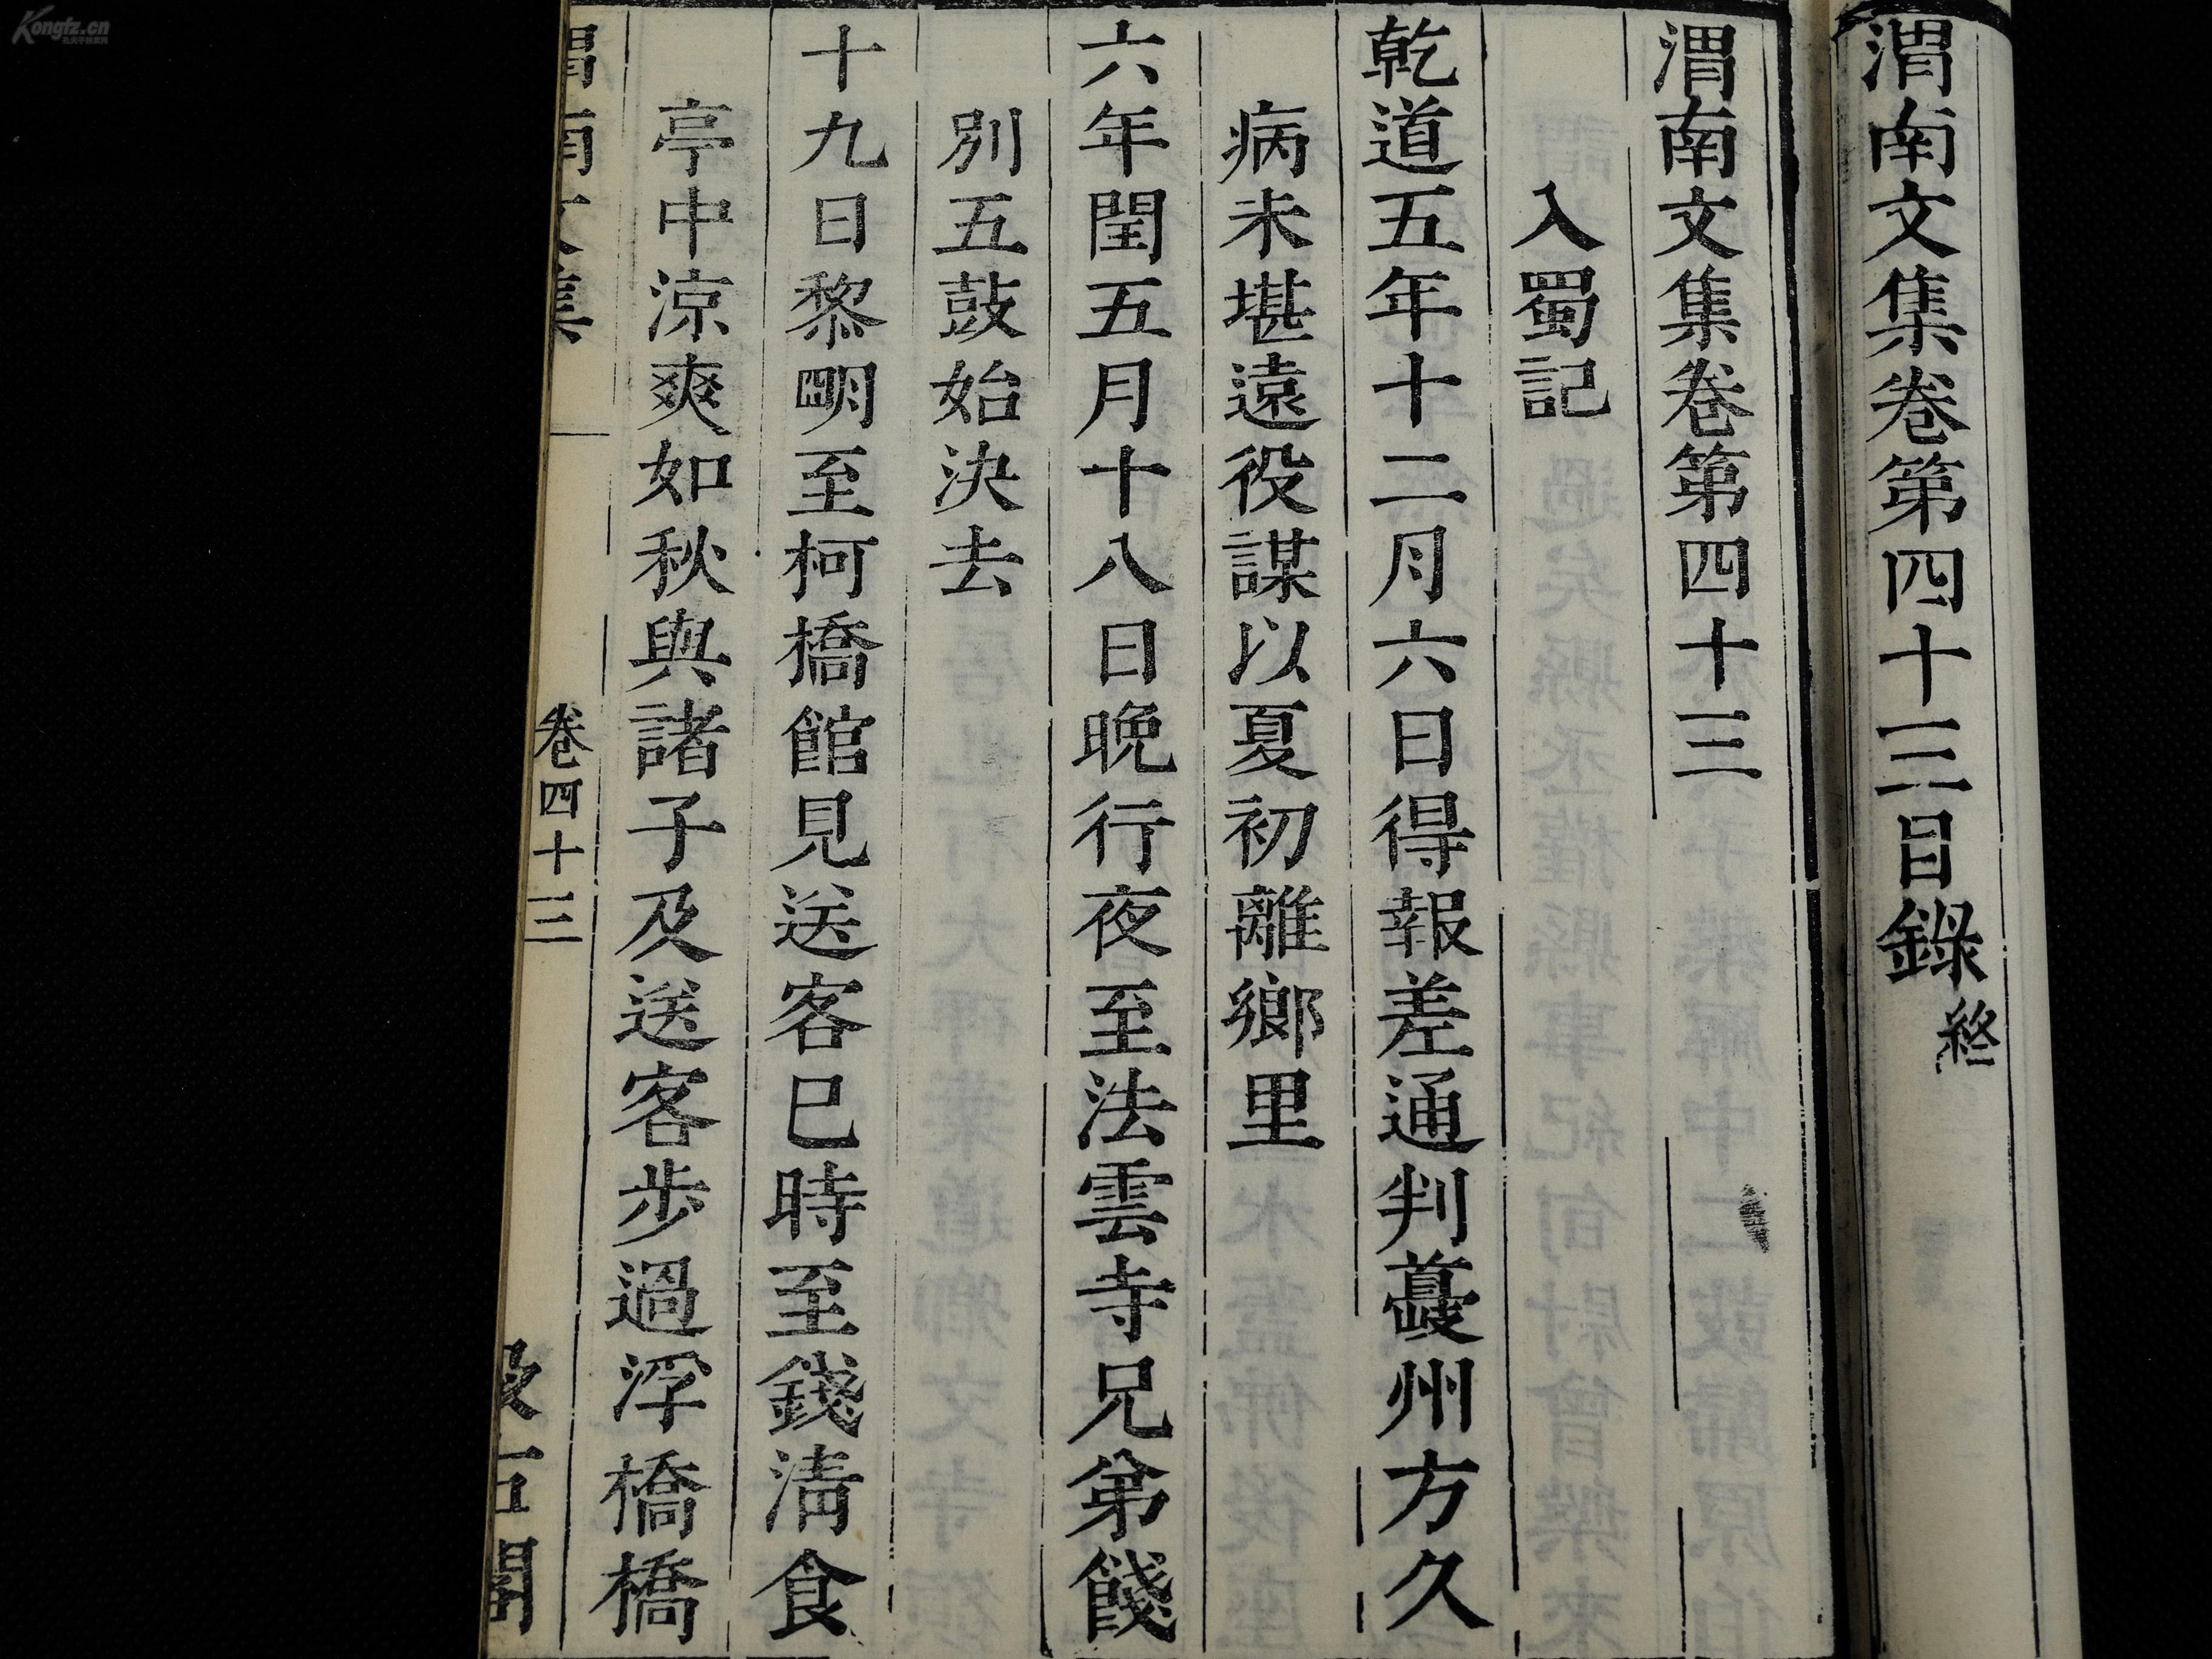 渭南文集卷第四十三目錄終
渭南文集卷第四十三
入蜀記
乾道五年十二月六日得報差通判夔州方久
病未堪遠役謀以夏初離鄉里
六年閏五月十八日晚行夜至法雲寺兄弟餞
別五鼓始決去
十九日黎明至柯橋館見送客巳時至錢清食
亭中涼爽如秋與諸子及送客步過浮橋橋
渭南文集
卷四十三
汲古閣
Kongfz.cn